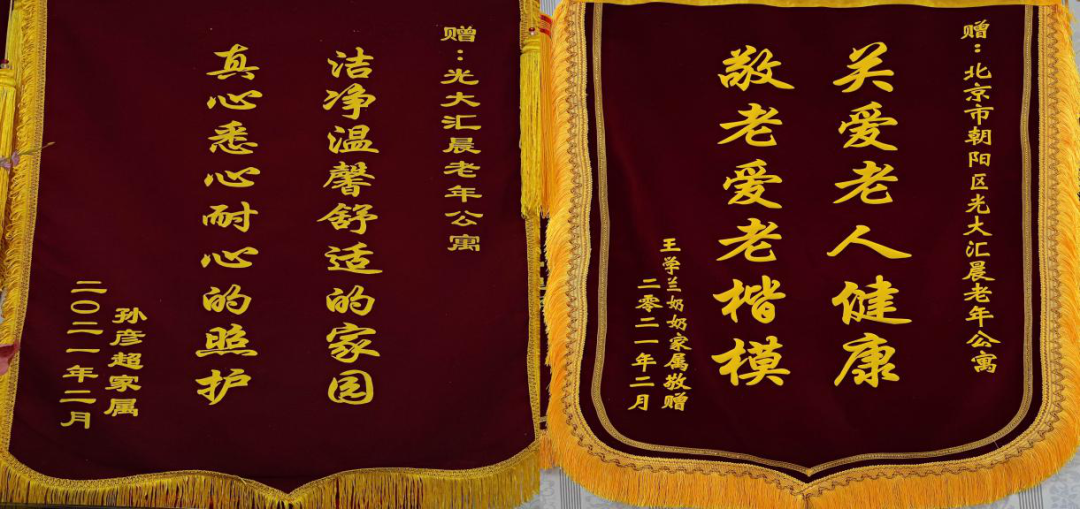 赠：光大汇晨老年公寓
洁净温馨舒适的家园
真心悉心耐心的照护
孙彦超家属
二〇二一年二月
赠：北京市朝阳区光大汇晨老年公寓
关爱老人健康
敬老爱老楷模
王学兰奶奶家属敬赠
二零二一年二月